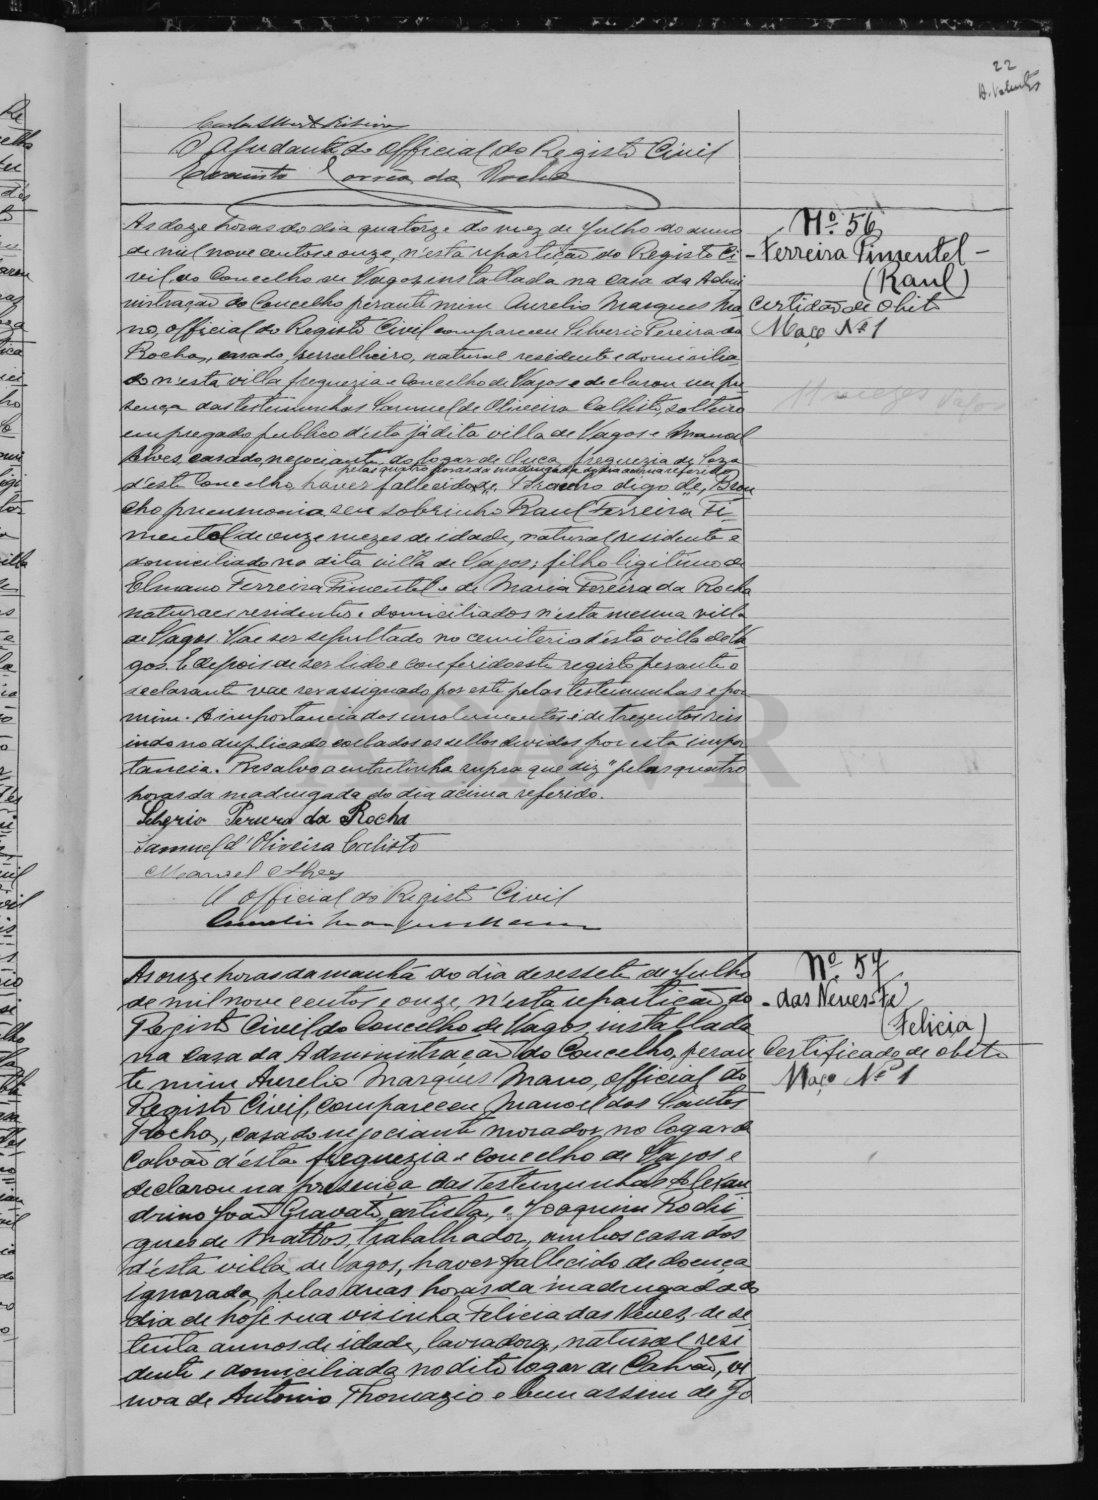 22
Carlos Albert Ribeiro
O Ajudante do Official do Registo Civil
Corrêa da Rocha
As doze horas do dia quatorze do mez de Julho do anno
de mil nove centos e onze, n'esta repartição do Registo Ci-
vil do Concelho de Vagos, installada na casa da Admi
nistração do Concelho perante mim Aurelio Marques Ma
no, official do Registo Civil compareceu Silverio Pereira da
Rocha, casado, serralheiro, natural residente e domicilia
do n'esta villa freguezia e Concelho de Vagos e declarou na pre
sença das testemunhas Samuel de Oliveira Callisto, solteiro
empregado publico d'esta já dita villa de Vagos e Manoel
Alves, casado, negociante do logar de Ouca, freguezia de Soza
pelas quatro horas da madrugada do dia acima referido
d'este Concelho, haver fallecido de Broncho digo de, Bron
cho pneumonia seu sobrinho Raul Ferreira Pi-
mentel de onze mezes de idade, natural residente e
domiciliado na dita villa de Vagos; filho ligitimo de
Elmano Ferreira Pimentel e de Maria Pereira da Rocha
naturaes residentes e domiciliados n'esta mesma villa
de Vagos. Vae ser sepultado no cemiterio d'esta villa de Va
gos. E depois de ser lido e conferido este registo perante o
declarante vae ser assignado por este pelas testemunhas e por
mim. A importancia dos emolumentos é de trezentos reis
indo no duplicado collados os sellos devidos por esta impor
tancia. Resalvo a entrelinha supra que diz "pelas quatro
horas da madrugada do dia acima referido.
Silverio Pereira da Rocha
Samuel d'Oliveira Calisto
Manoel Alves
O official do Registo Civil
Aurelio Marques Mano
Nº 56
- Ferreira Pimentel -
(Raul)
Certidão de Obito
Maço Nº 1
11 mezes Vagos
As onze horas da manhã do dia desessete de Julho
de mil nove centos e onze, n'esta repartição do
Registo Civil do Concelho de Vagos, installada
na casa da Administração do Concelho, peran
te mim Aurelio Marques Mano, official do
Registo Civil, compareceu Manoel dos Santos
Rocha, casado negociante morador no logar de
Calvão d'esta freguezia e concelho de Vagos e
declarou na presença das testemunhas Alexan
drino João Gravato, artista, e Joaquim Rodri
gues de Mattos, trabalhador, ambos casados
d'esta villa de Vagos, haver fallecido de doença
ignorada, pelas duas horas da madrugada do
dia de hoje sua visinha Felicia das Neves, de se
tenta annos de idade, lavradora, natural resi
dente e domiciliada no dito logar de Calvão, vi
uva de Antonio Thomazio e bem assim de Jo
Nº 57
- das Neves-Fé
(Felicia)
Certificado de obito
Maço Nº 1
ADAVR